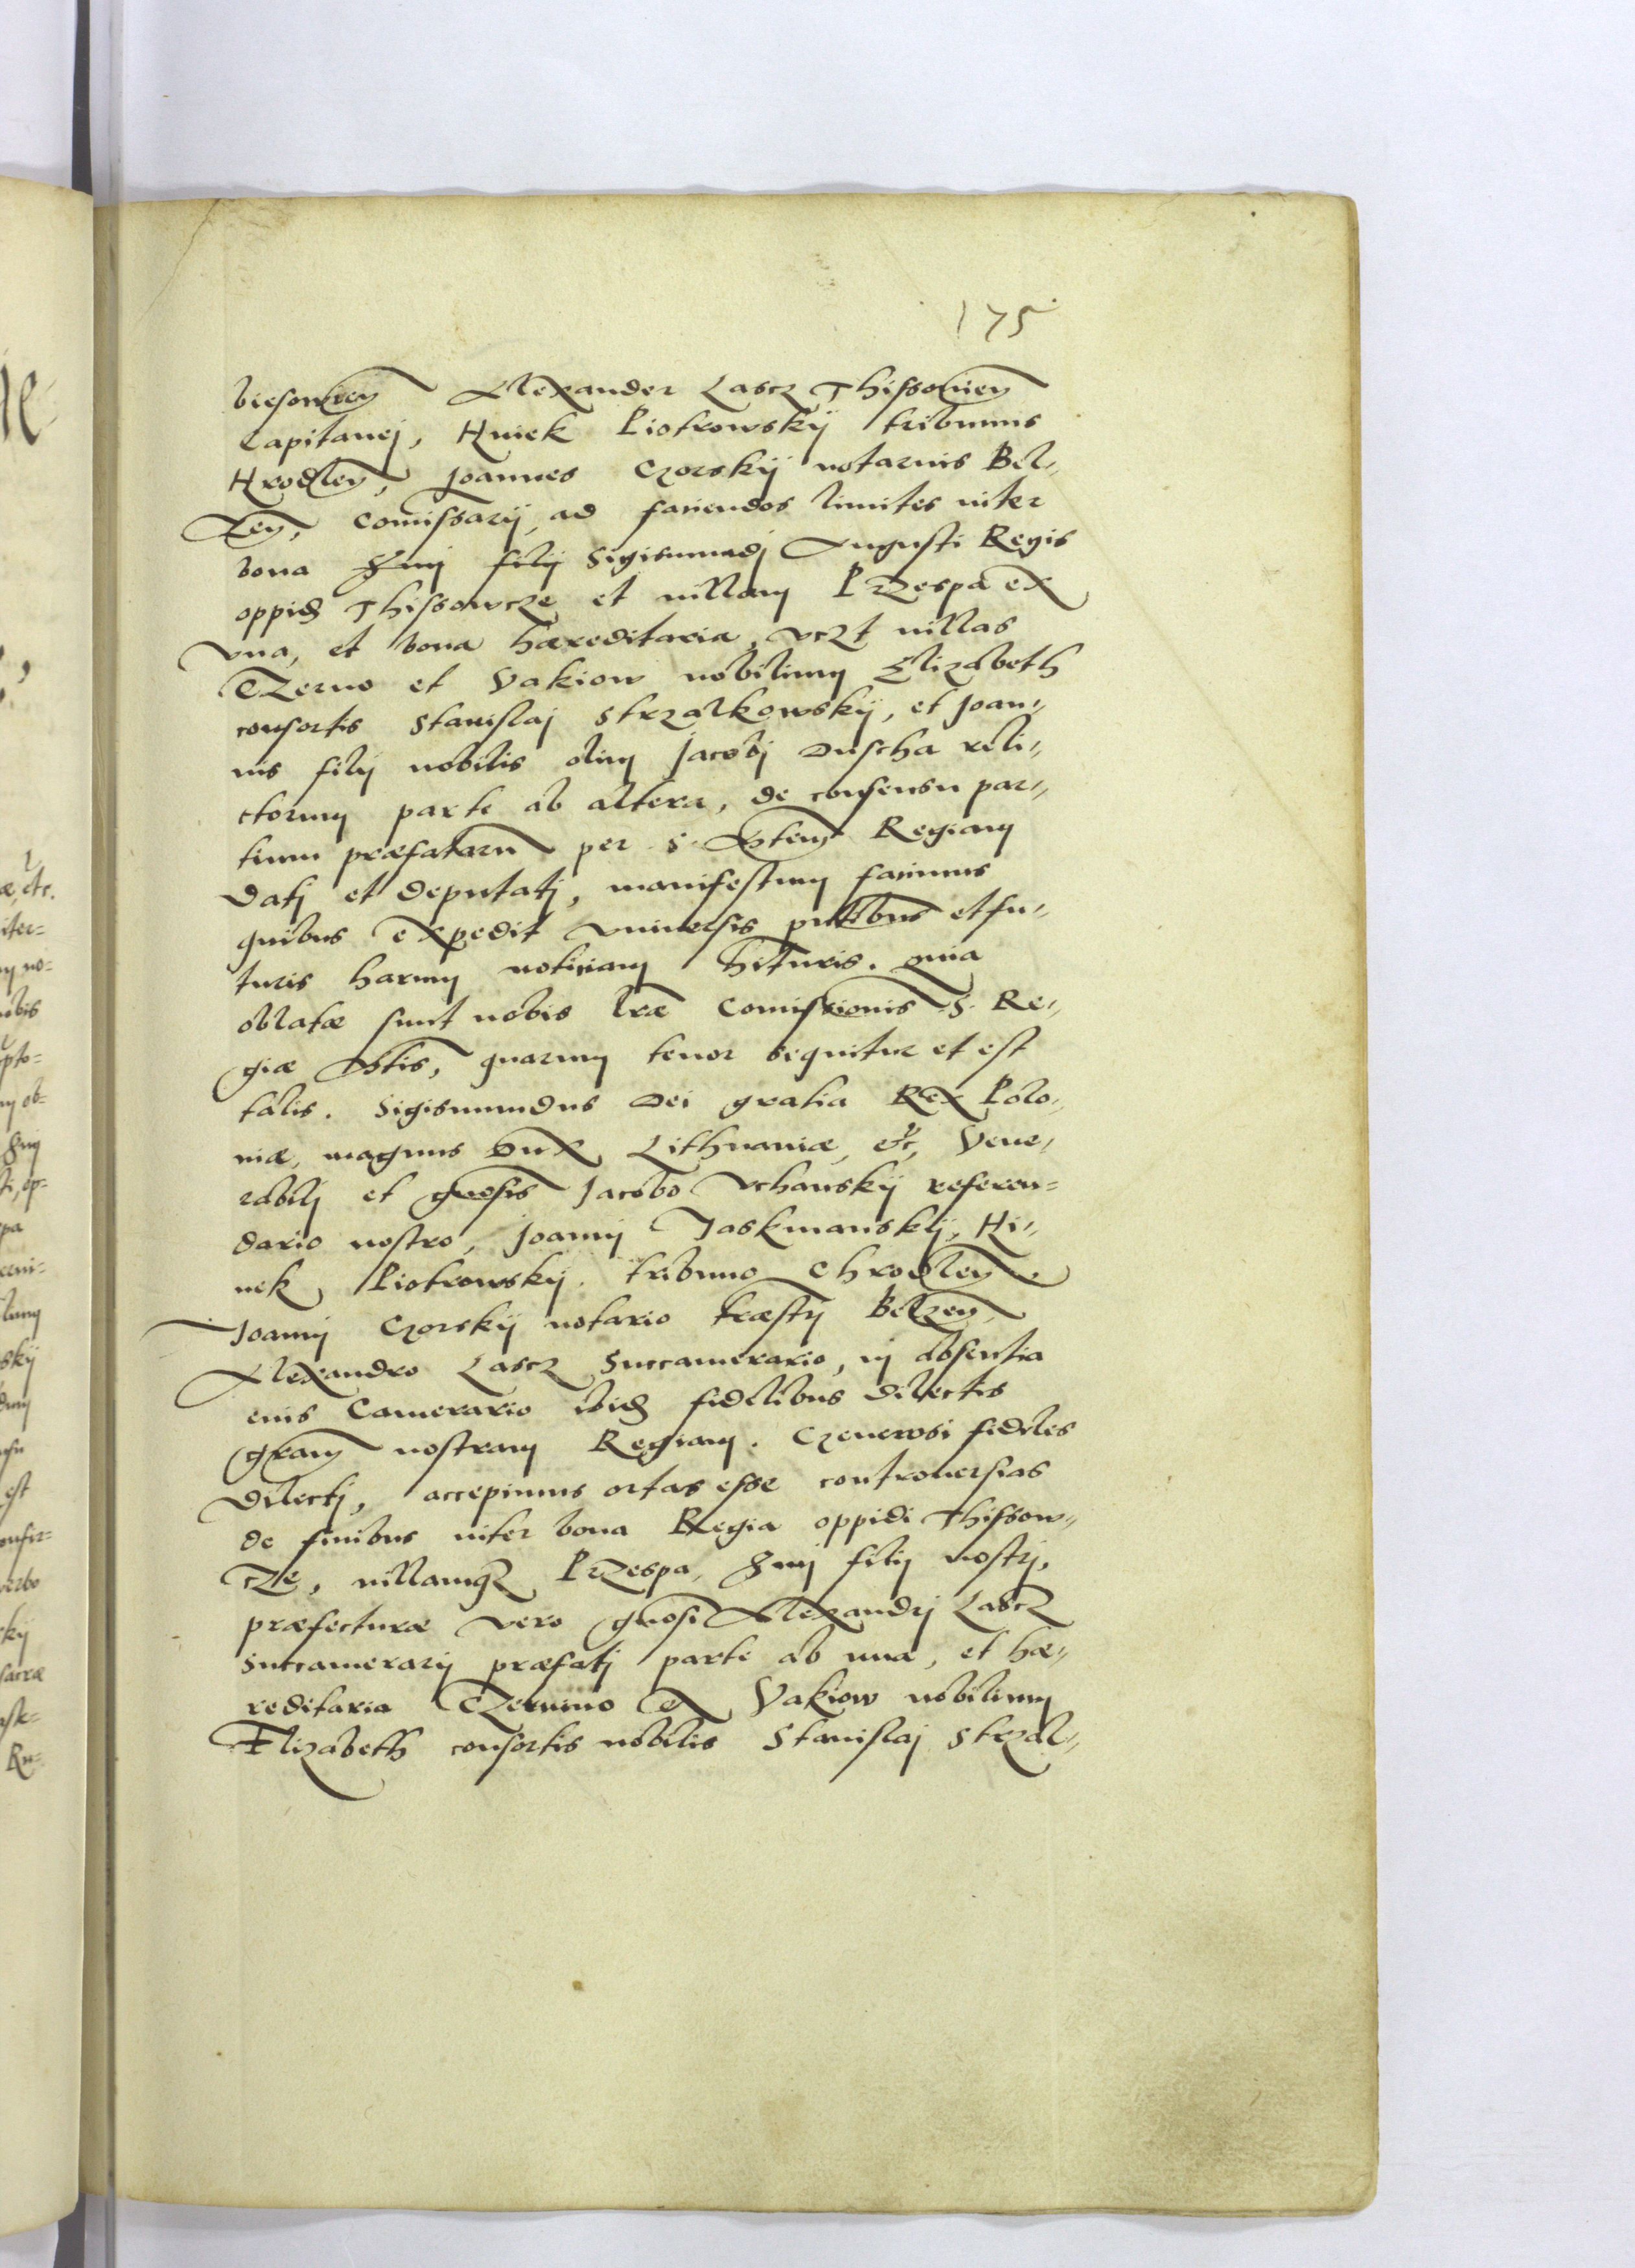 175
biesowien Alexander Lascz Thissowien
Capitanei, Hniek Piotrowskij tribunus
Hrodlen, Joannes Czorskij notarius Bel„
zen, Comissarij ad faciendos limites inter
bona Srmi filij Sigismundj Augusti Regis
oppid Thissowcze et villam Przespa ex
vna, et bona hæreditaria, vczt villas
Czerno et Vakiow nobilium Elizabeth
consortis Stanislaj Strzalkowskij, et Joan„
nis filij nobilis olim Jacobj Duscha reli„
ctorum parte ab altera, de consensu par„
tium præfataru per S. Mtem Regiam
datj et deputatj, manifestum facimus
quibus expedit vniuersis pntibus et fu„
turis harum notitiam hituris. quia
oblatæ sunt nobis lræ Comissionis S. Re„
giæ Mtis, quarum tenor sequitur et est
talis. Sigismundus Dei gratia Rex Polo„
niæ, magnus Dux Lithuaniæ, etc, Vene„
rabilj et gnosis Jacobo Vchanskij referen=
dario nostro, Joannj Jaskmanskij, Hi„
nek Piotrowskij tribuno Chrodlen.
Joannj Czorskij notario træstj Belzen,
Alexandro Lascz Succamerario, in absentia
eius Camerario ibid fidelibus dilectis
gram nostram Regiam. Generosi fideles
dilectj, accepimus ortas esse controuersias
de finibus inter bona Regia oppidi Thissow„
cze, villamq Przespa, Srmi filij nostrj,
præfecturæ vero gnosi Alexandrj Lascz
Succamerarij præfatj parte ab una, et hæ„
reditaria Czernno et Vakiow nobilium
Elizabeth consortis nobilis Stanislaj Strzal„